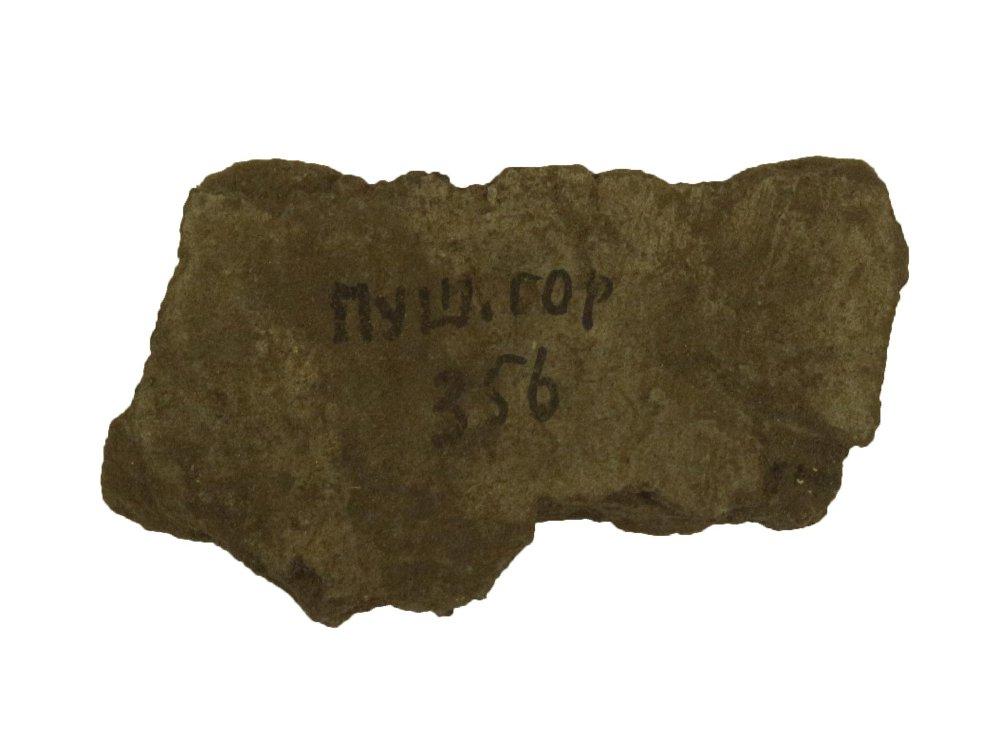 ПУШ.ГОР
356